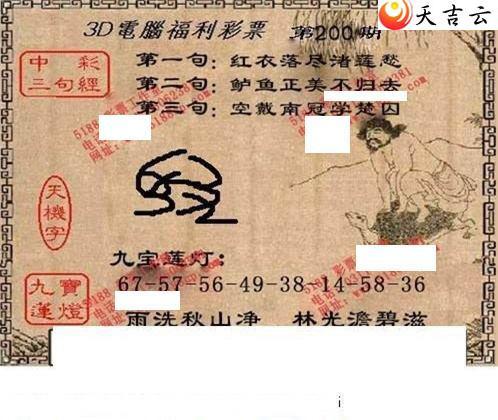 天吉云
3D電腦福利彩票 第200期
中彩三句經
第一句：红衣落尽渚莲愁
第二句：鲈鱼正美不归去
第三句：空戴南冠学楚囚
天機字
九宝莲灯：
九寶蓮燈
67-57-56-49-38-14-58-36
雨洗秋山净 林光澹碧滋
i